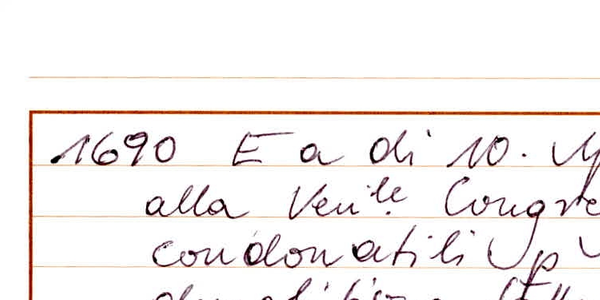 1690 E a di 10.
alla Ven.le Congre
condonatili p